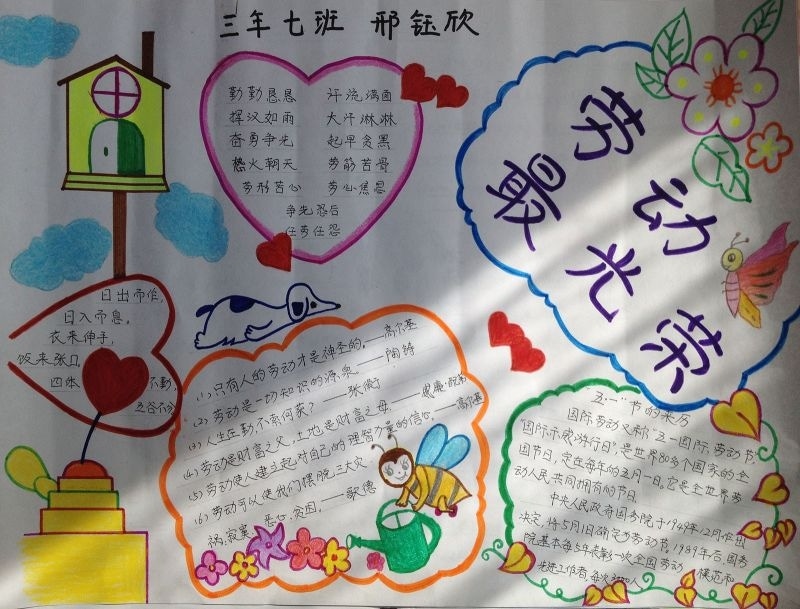 三年七班 邢钰欣
勤勤恳恳 汗流满面
挥汉如雨 大汗淋淋
奋勇争先 起早贪黑
热火朝天 劳筋苦骨
劳形苦心 劳心焦思
争先恐后
任劳任怨
劳动
最光荣
日出而作,
日入而息。
衣来伸手,
饭来张口。
四体 不勤,
五谷不分
(1)只有人的劳动才是神圣的。——高尔基
(2)劳动是一切知识的源泉。——陶铸
(3)人生在勤不索何获?——张衡
(4)劳动是财富之父,土地是财富之母。——威廉·配第
(5)劳动使人建立起对自己的理智力量的信心。——高尔基
(6)劳动可以使我们摆脱三大灾
祸:寂寞、恶心、贫困。——歌德
五·一"节的来历
国际劳动又称"五一国际劳动节
"国际示威游行日"是世界80多个国家的全
国节日。定在每年的五月一日。它是全世界劳
动人民共同拥有的节日。
中央人民政府国务院于1949年12月作出
决定,将5月1日确定为劳动节。1989年后,国务
院基本每5年表彰一次全国劳动 模范和
先进工作者,每次3000人